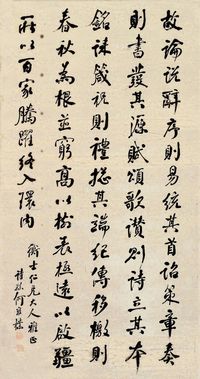 故論說辭序則易統其首詔策章奏
則書發其源賦頌歌讚則詩立其本
銘誄箴祝則禮摠其端紀傳移檄則
春秋為根並窮高以樹表極遠以啟疆
所以百家騰躍終入環內
仁兄大人雅正
詩孫何維樸